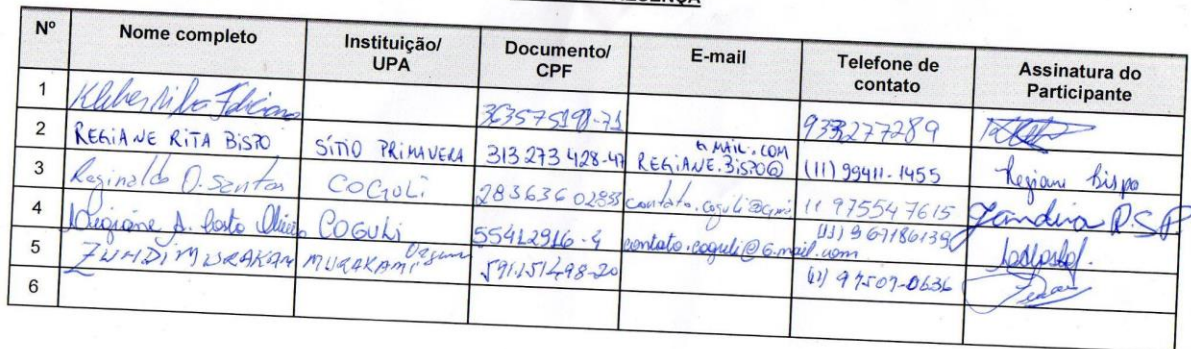 Nº Nome completo Instituição/ UPA Documento/ CPF E-mail Telefone de contato Assinatura do Participante
1 Kleber Silva Feliciano 933277289
2 REGIANE RITA BISPO SÍTIO PRIMAVERA 313 273 428-47 REGIANE.BISPO@ GMAIL.COM (11) 99411-1455 Regiane Bispo
3 Reginaldo D. Santos COGULI contato.coguli@gmi 11 975547615 Jandira P.S.P
4 COGULI 55412916-4 contato.coguli@G.mail.com (11) 967186139
5 MURAKAMI 591151498-20 97507-0636
6